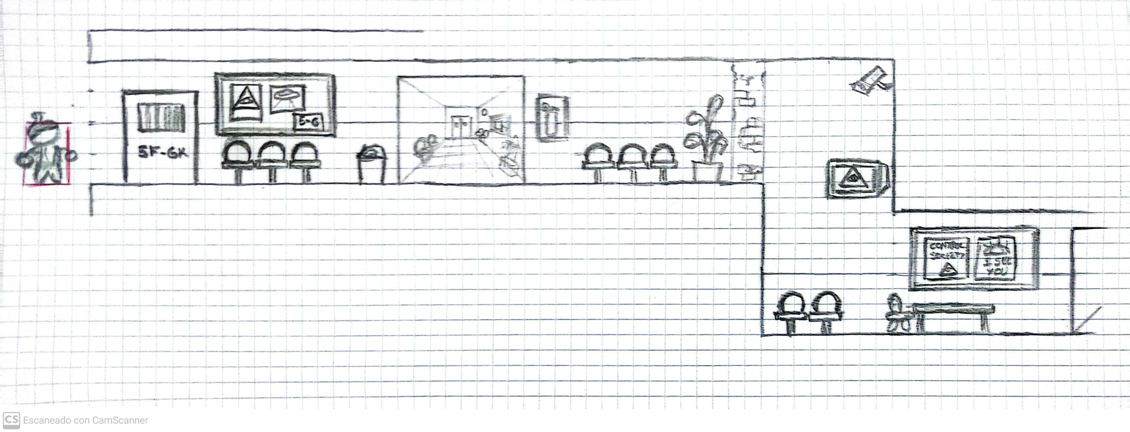 SF-GK
S-G
CONTROL
SOCIETY
I SEE
YOU
CS Escaneado con CamScanner